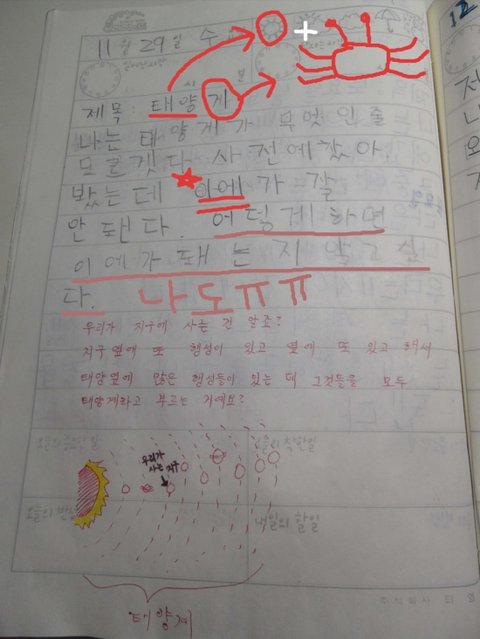 12
11월 29일 수
시 분
제목: 태양게
나는 태양게가 무엇인줄
모르겟다 사전에찼아
봤는데 이에가 잘
안 돼다. 어덯게하면
이에가 돼는지 알고싶
다. 나도ㅠㅠ
우리가 지구에 사는건 알죠?
지구옆에 또 행성이 있고 옆에 또 있고 해서
태양옆에 많은 행성들이 있는데 그것들을 모두
태양계라고 부르는 거예요?
오늘의 착한일
우리가
사는 지구
오늘의 반성
내일의 할일
태양계
주식회사